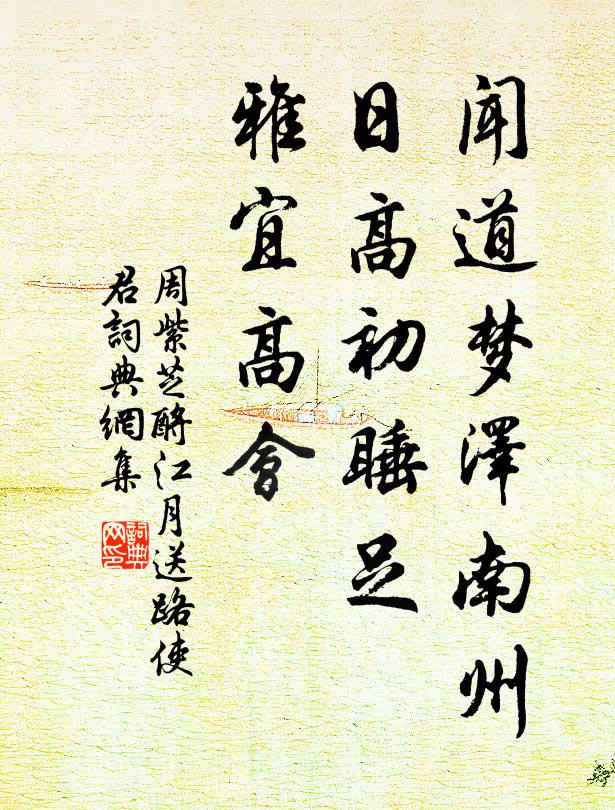 闻道梦澤南州
日高初睡足
雅宜高會
周紫芝酹江月送路使
君詞典網集
詞典
网印